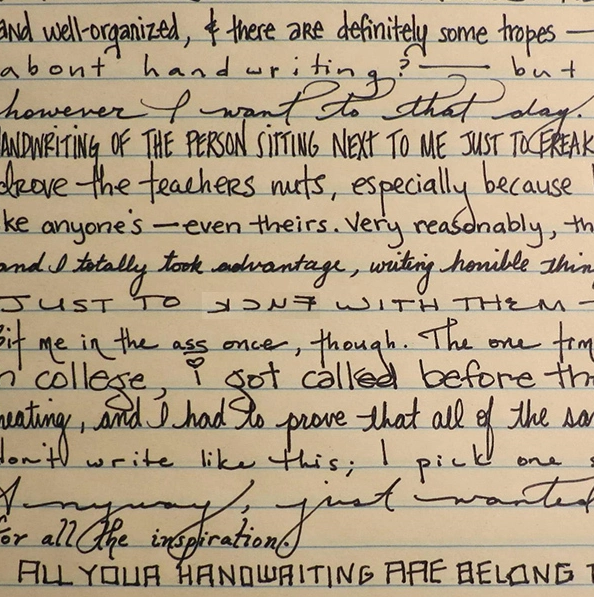 and well-organized, & there are definitely some tropes —
about handwriting? — but
however I want to that day.
ANDWRITING OF THE PERSON SITTING NEXT TO ME JUST TO FREAK
drove the teachers nuts, especially because
ke anyone's — even theirs. Very reasonably, th
and I totally took advantage, writing horrible thin
JUST TO FUCK WITH THEM —
Bit me in the ass once, though. The one tim
n college, i got called before th
heating, and I had to prove that all of the sa
don't write like this; I pick one s
Anyway, just wanted
for all the inspiration.
ALL YOUR HANDWRITING ARE BELONG T